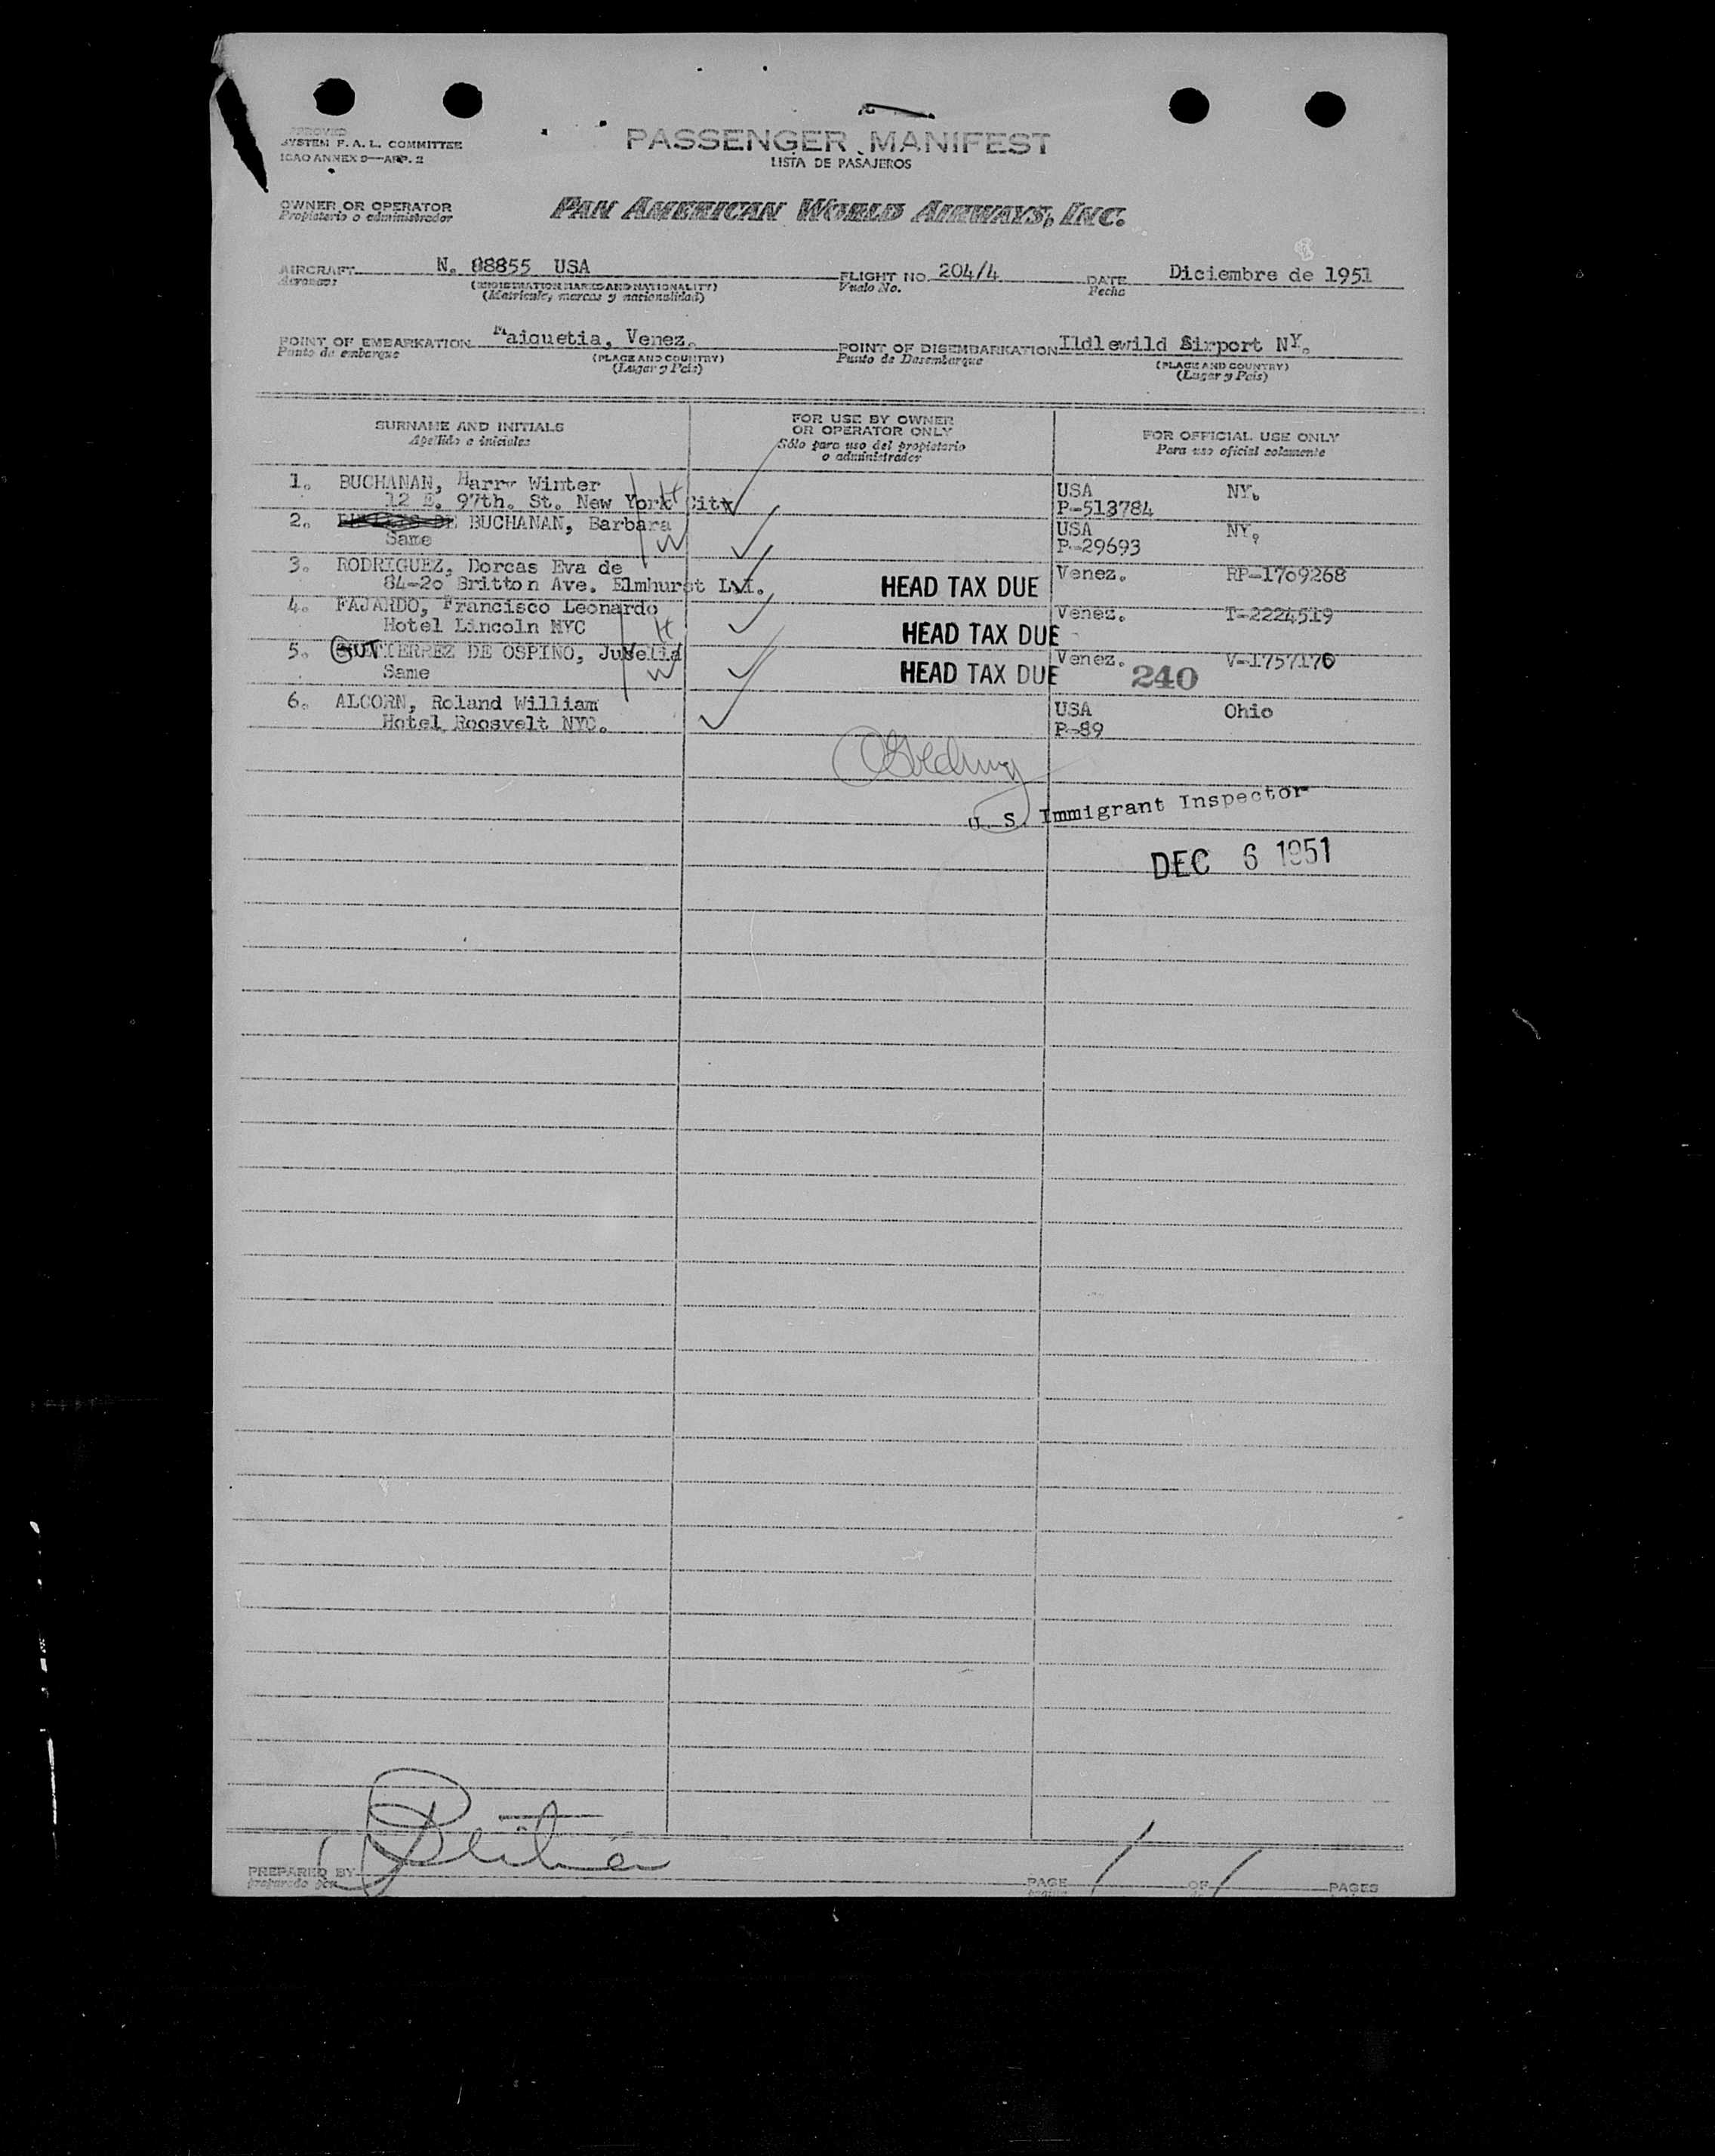 APPROVED
SYSTEM F. A. L. COMMITTEE
ICAO ANNEX 9—APP. 2
PASSENGER MANIFEST
LISTA DE PASAJEROS
OWNER OR OPERATOR
Propietario o administrador
PAN AMERICAN WORLD AIRWAYS, INC.
AIRCRAFT N. 88855 USA FLIGHT NO. 204/4 DATE Diciembre de 1951
Aeronave: (REGISTRATION MARKS AND NATIONALITY) Vuelo No. Fecha
(Matrícula, marcas y nacionalidad)
POINT OF EMBARKATION Maiquetia, Venez. POINT OF DISEMBARKATION Ildlewild Airport NY.
Punto de embarque (PLACE AND COUNTRY) Punto de Desembarque (PLACE AND COUNTRY)
(Lugar y País) (Lugar y País)
SURNAME AND INITIALS
Apellido e iniciales
FOR USE BY OWNER
OR OPERATOR ONLY
Sólo para uso del propietario
o administrador
FOR OFFICIAL USE ONLY
Para uso oficial solamente
1. BUCHANAN, Harry Winter USA NY.
12 E. 97th. St. New York City H P-513784
2. DE BUCHANAN, Barbara USA NY.
Same W P-29693
3. RODRIGUEZ, Dorcas Eva de Venez. RP-1709268
84-20 Britton Ave. Elmhurst L.I. HEAD TAX DUE
4. FAJARDO, Francisco Leonardo Venez. T-2224519
Hotel Lincoln NYC H HEAD TAX DUE
5. GUTIERREZ DE OSPINO, Juvelia Venez. V-1757176
Same W HEAD TAX DUE 240
6. ALCORN, Roland William USA Ohio
Hotel Roosvelt NYC. P-89
U. S. Immigrant Inspector
DEC 6 1951
PREPARED BY PAGE 1 OF 1 PAGES
preparado por página